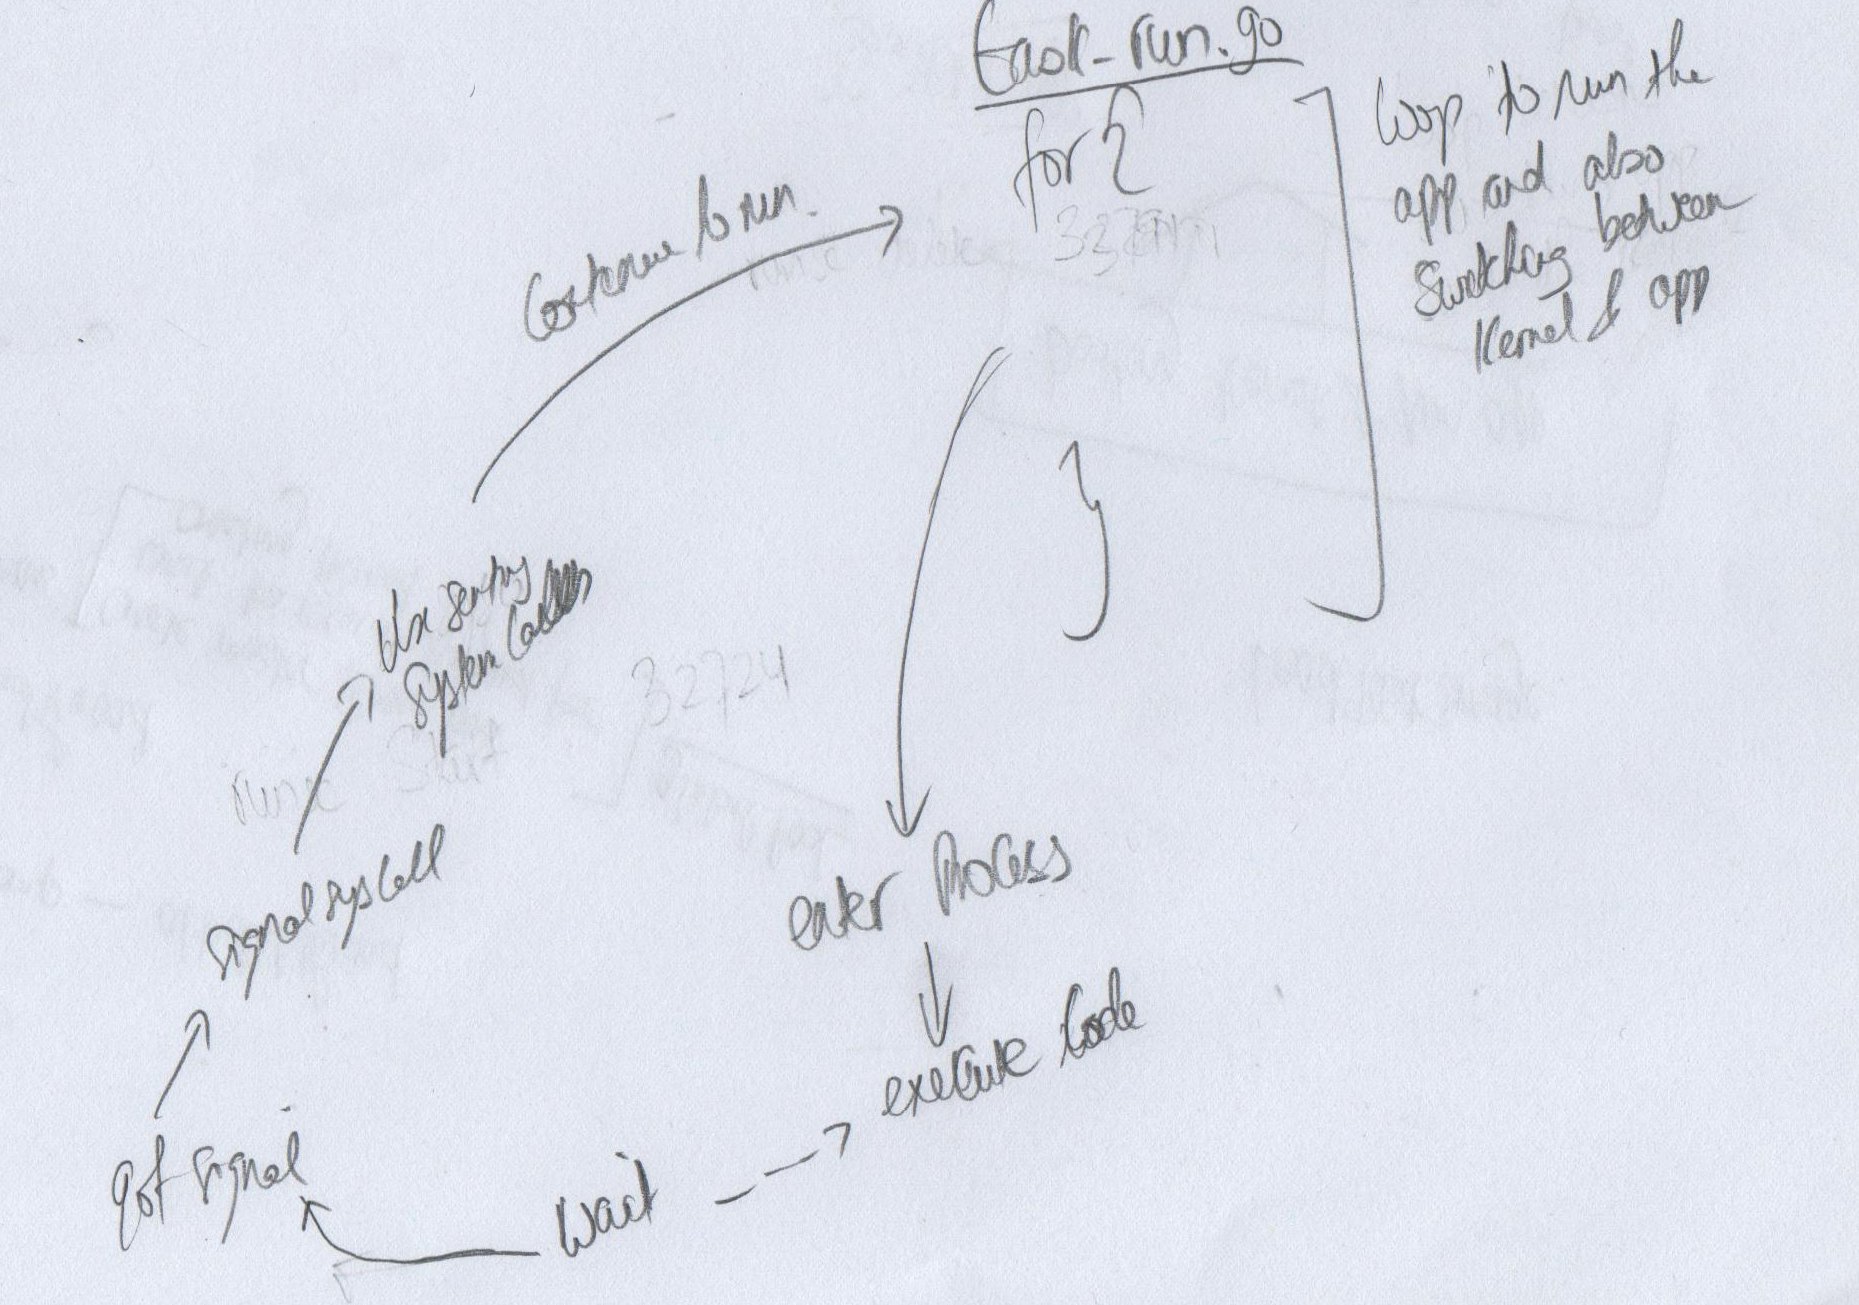 task-run.go
for {
}
loop to run the
app and also
switching between
Kernel & app
Continue to run.
enter process
execute code
wait
got signal
signal syscall
sentry
system
32724
runsc Start